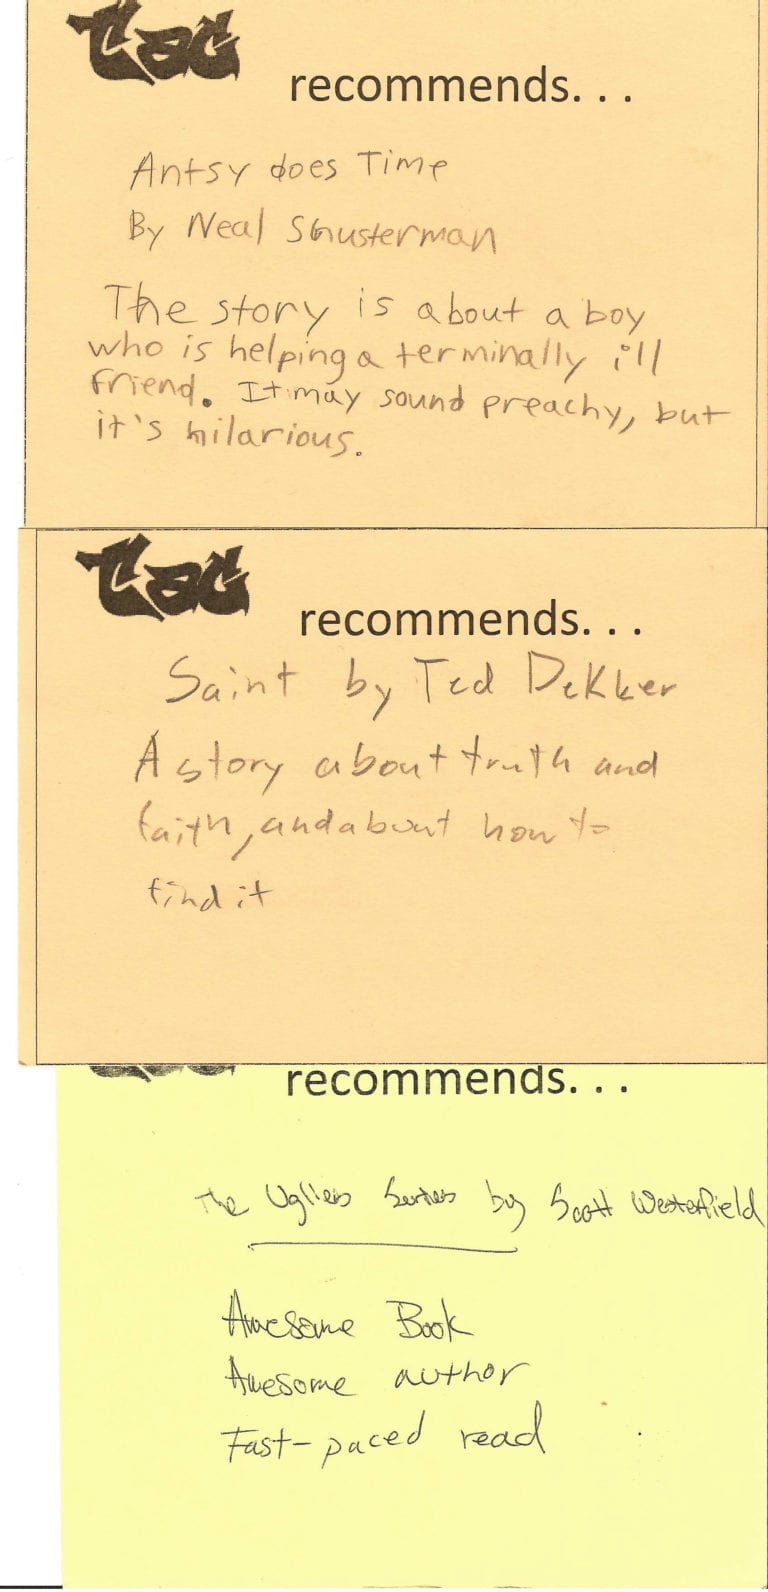 tac
recommends. . .
Antsy does Time
By Neal Shusterman
The story is about a boy
who is helping a terminally ill
friend. It may sound preachy, but
it's hilarious.
tac
recommends. . .
Saint by Ted Dekker
A story about truth and
faith, and about how to
find it
recommends. . .
The Uglies Series by Scott Westerfield
Awesome Book
Awesome author
Fast-paced read